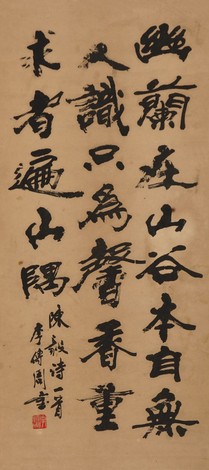 幽蘭在山谷本自無
人識只為馨香重
求者遍山隅
陳毅诗一首
李傳周書